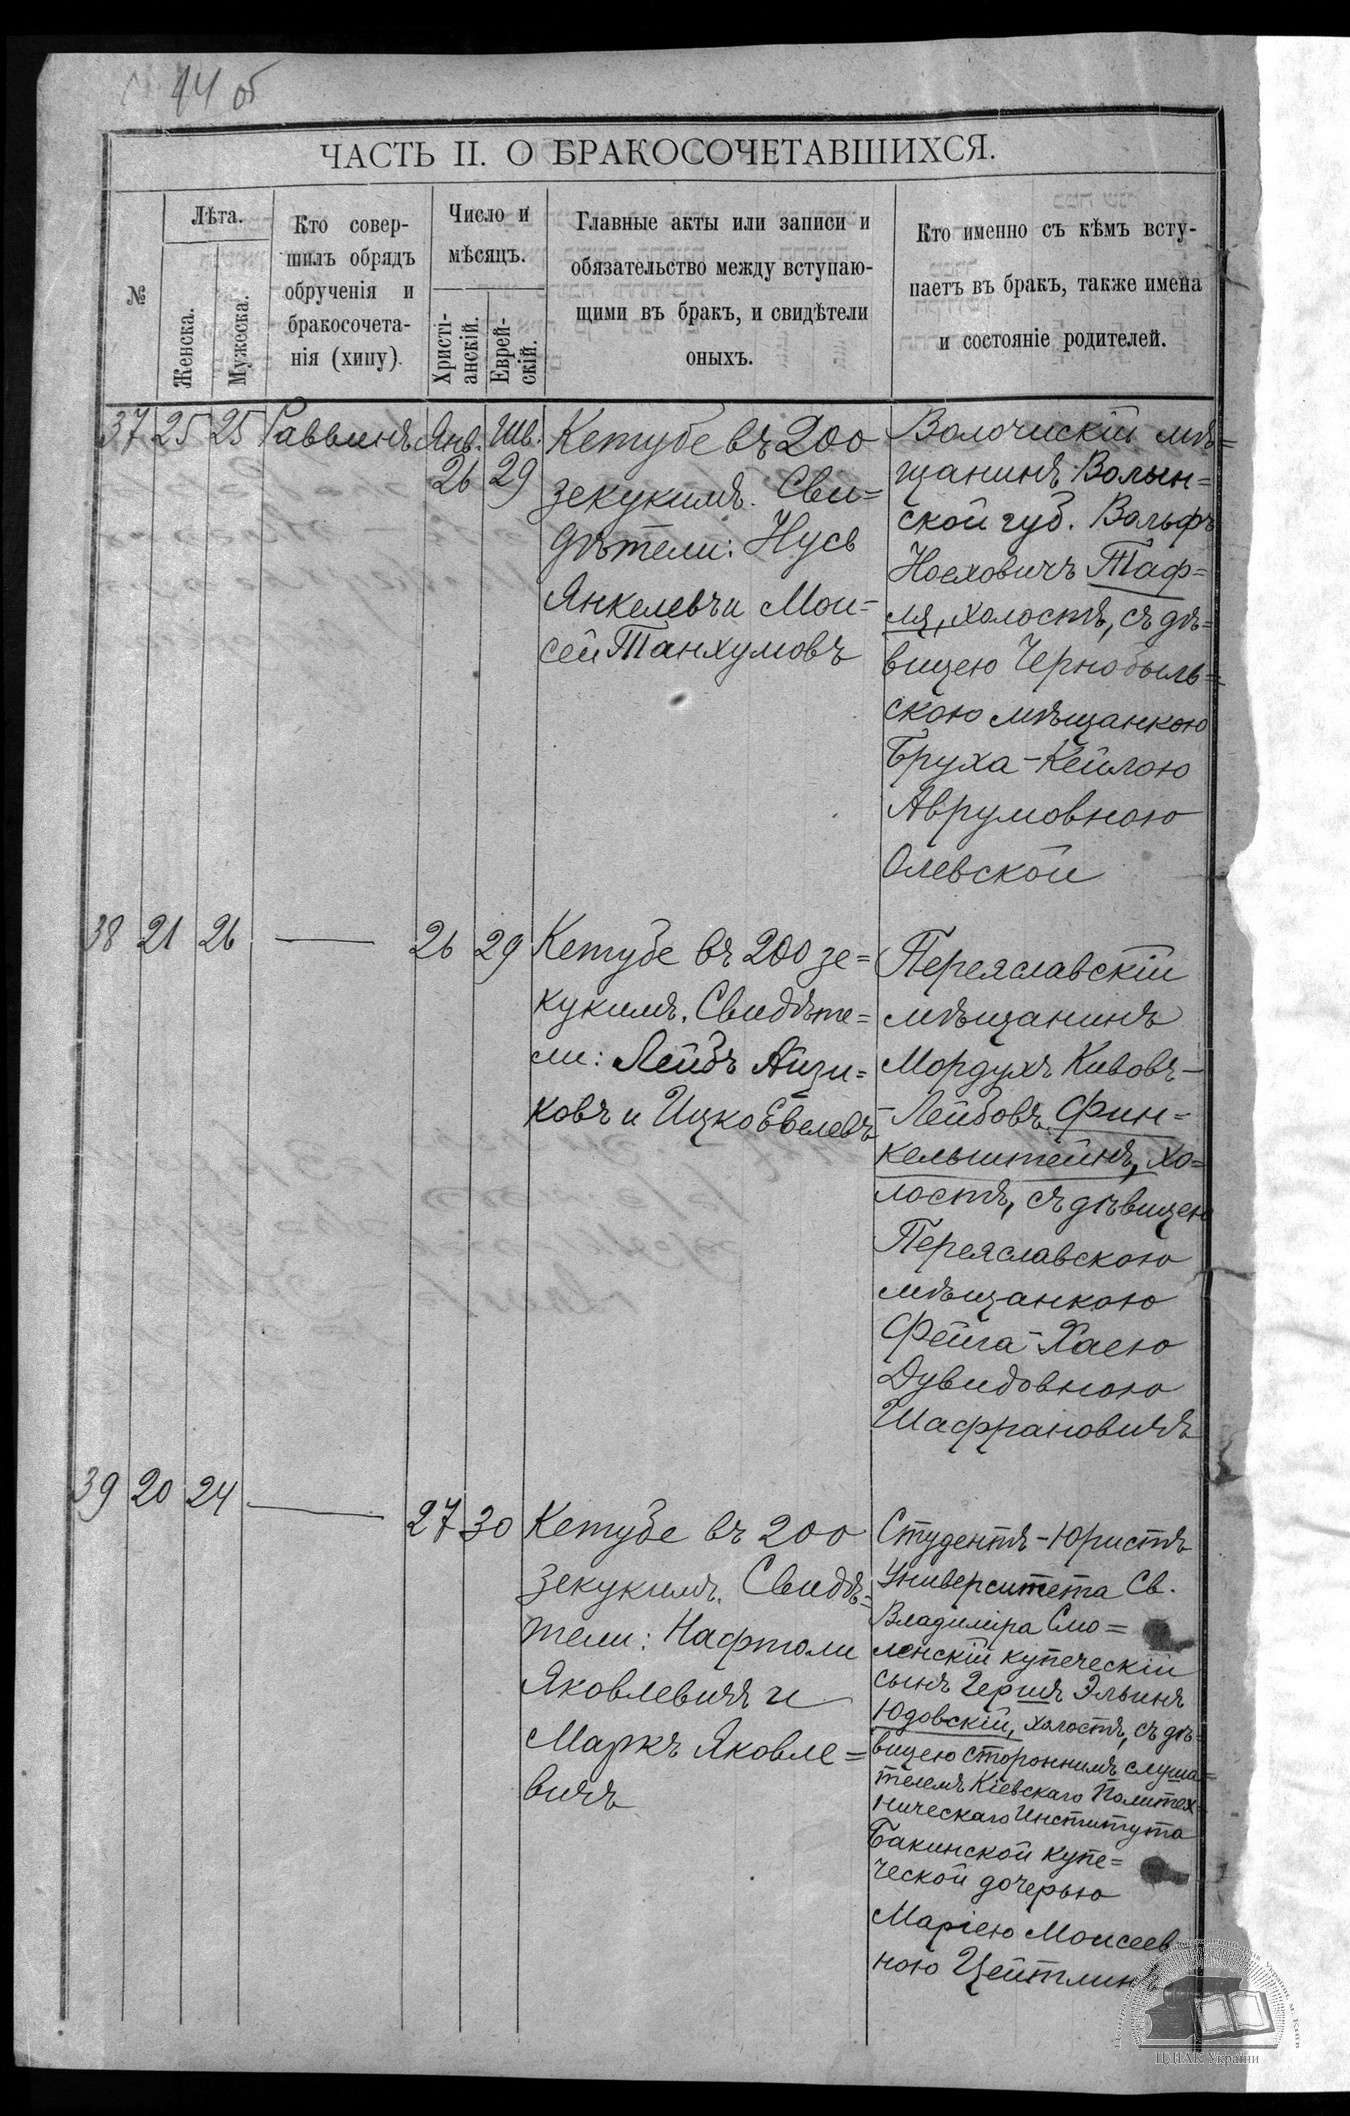 44 об
ЧАСТЬ II. О БРАКОСОЧЕТАВШИХСЯ.
№
Лѣта.
Женска.
Мужеска.
Кто совер-
шилъ обрядъ
обрученія и
бракосочета-
нія (хипу).
Число и
мѣсяцъ.
Христі-
анскій.
Еврей-
скій.
Главные акты или записи и
обязательство между вступаю-
щими въ бракъ, и свидѣтели
оныхъ.
Кто именно съ кѣмъ всту-
паетъ въ бракъ, также имена
и состояніе родителей.
37 25 25 Раввинъ Янв. 26 Шв. 29
Кетубе въ 200
зекукимъ. Сви=
дѣтели: Нусь
Янкелевъ и Мои=
сей Танхумовъ
Волочискій мѣ=
щанинъ Волын=
ской губ. Вольфъ
Носховичъ Таф=
ля, холостъ, съ дѣ=
вицею Чернобыль=
скою мѣщанкою
Бруха-Кейлою
Аврумовною
Олевской
38 21 26 — 26 29
Кетубе въ 200 зе=
кукимъ. Свидѣте=
ли: Лейбъ Айзи=
ковъ и Ицко Евелевъ
Переяславскій
мѣщанинъ
Мордухъ Кивовъ-
-Лейбовъ Фин=
кельштейнъ, хо=
лостъ, съ дѣвицею
Переяславскою
мѣщанкою
Фейга-Хаею
Дувидовною
Шафрановичъ
39 20 24 — 27 30
Кетубе въ 200
зекукимъ. Свидѣ=
тели: Нафтоли
Яковлевичъ и
Маркъ Яковле=
вичъ
Студентъ-Юристъ
Университета Св.
Владиміра Смо=
ленскій купеческій
сынъ Гершъ Эльинъ
Юдовскій, холостъ, съ дѣ=
вицею стороннимъ слуша=
телемъ Кіевскаго Политех
ническаго Института
Бакинской купе=
ческой дочерью
Маріею Моисеев
ною Цейтлинъ
ЦДІАК України